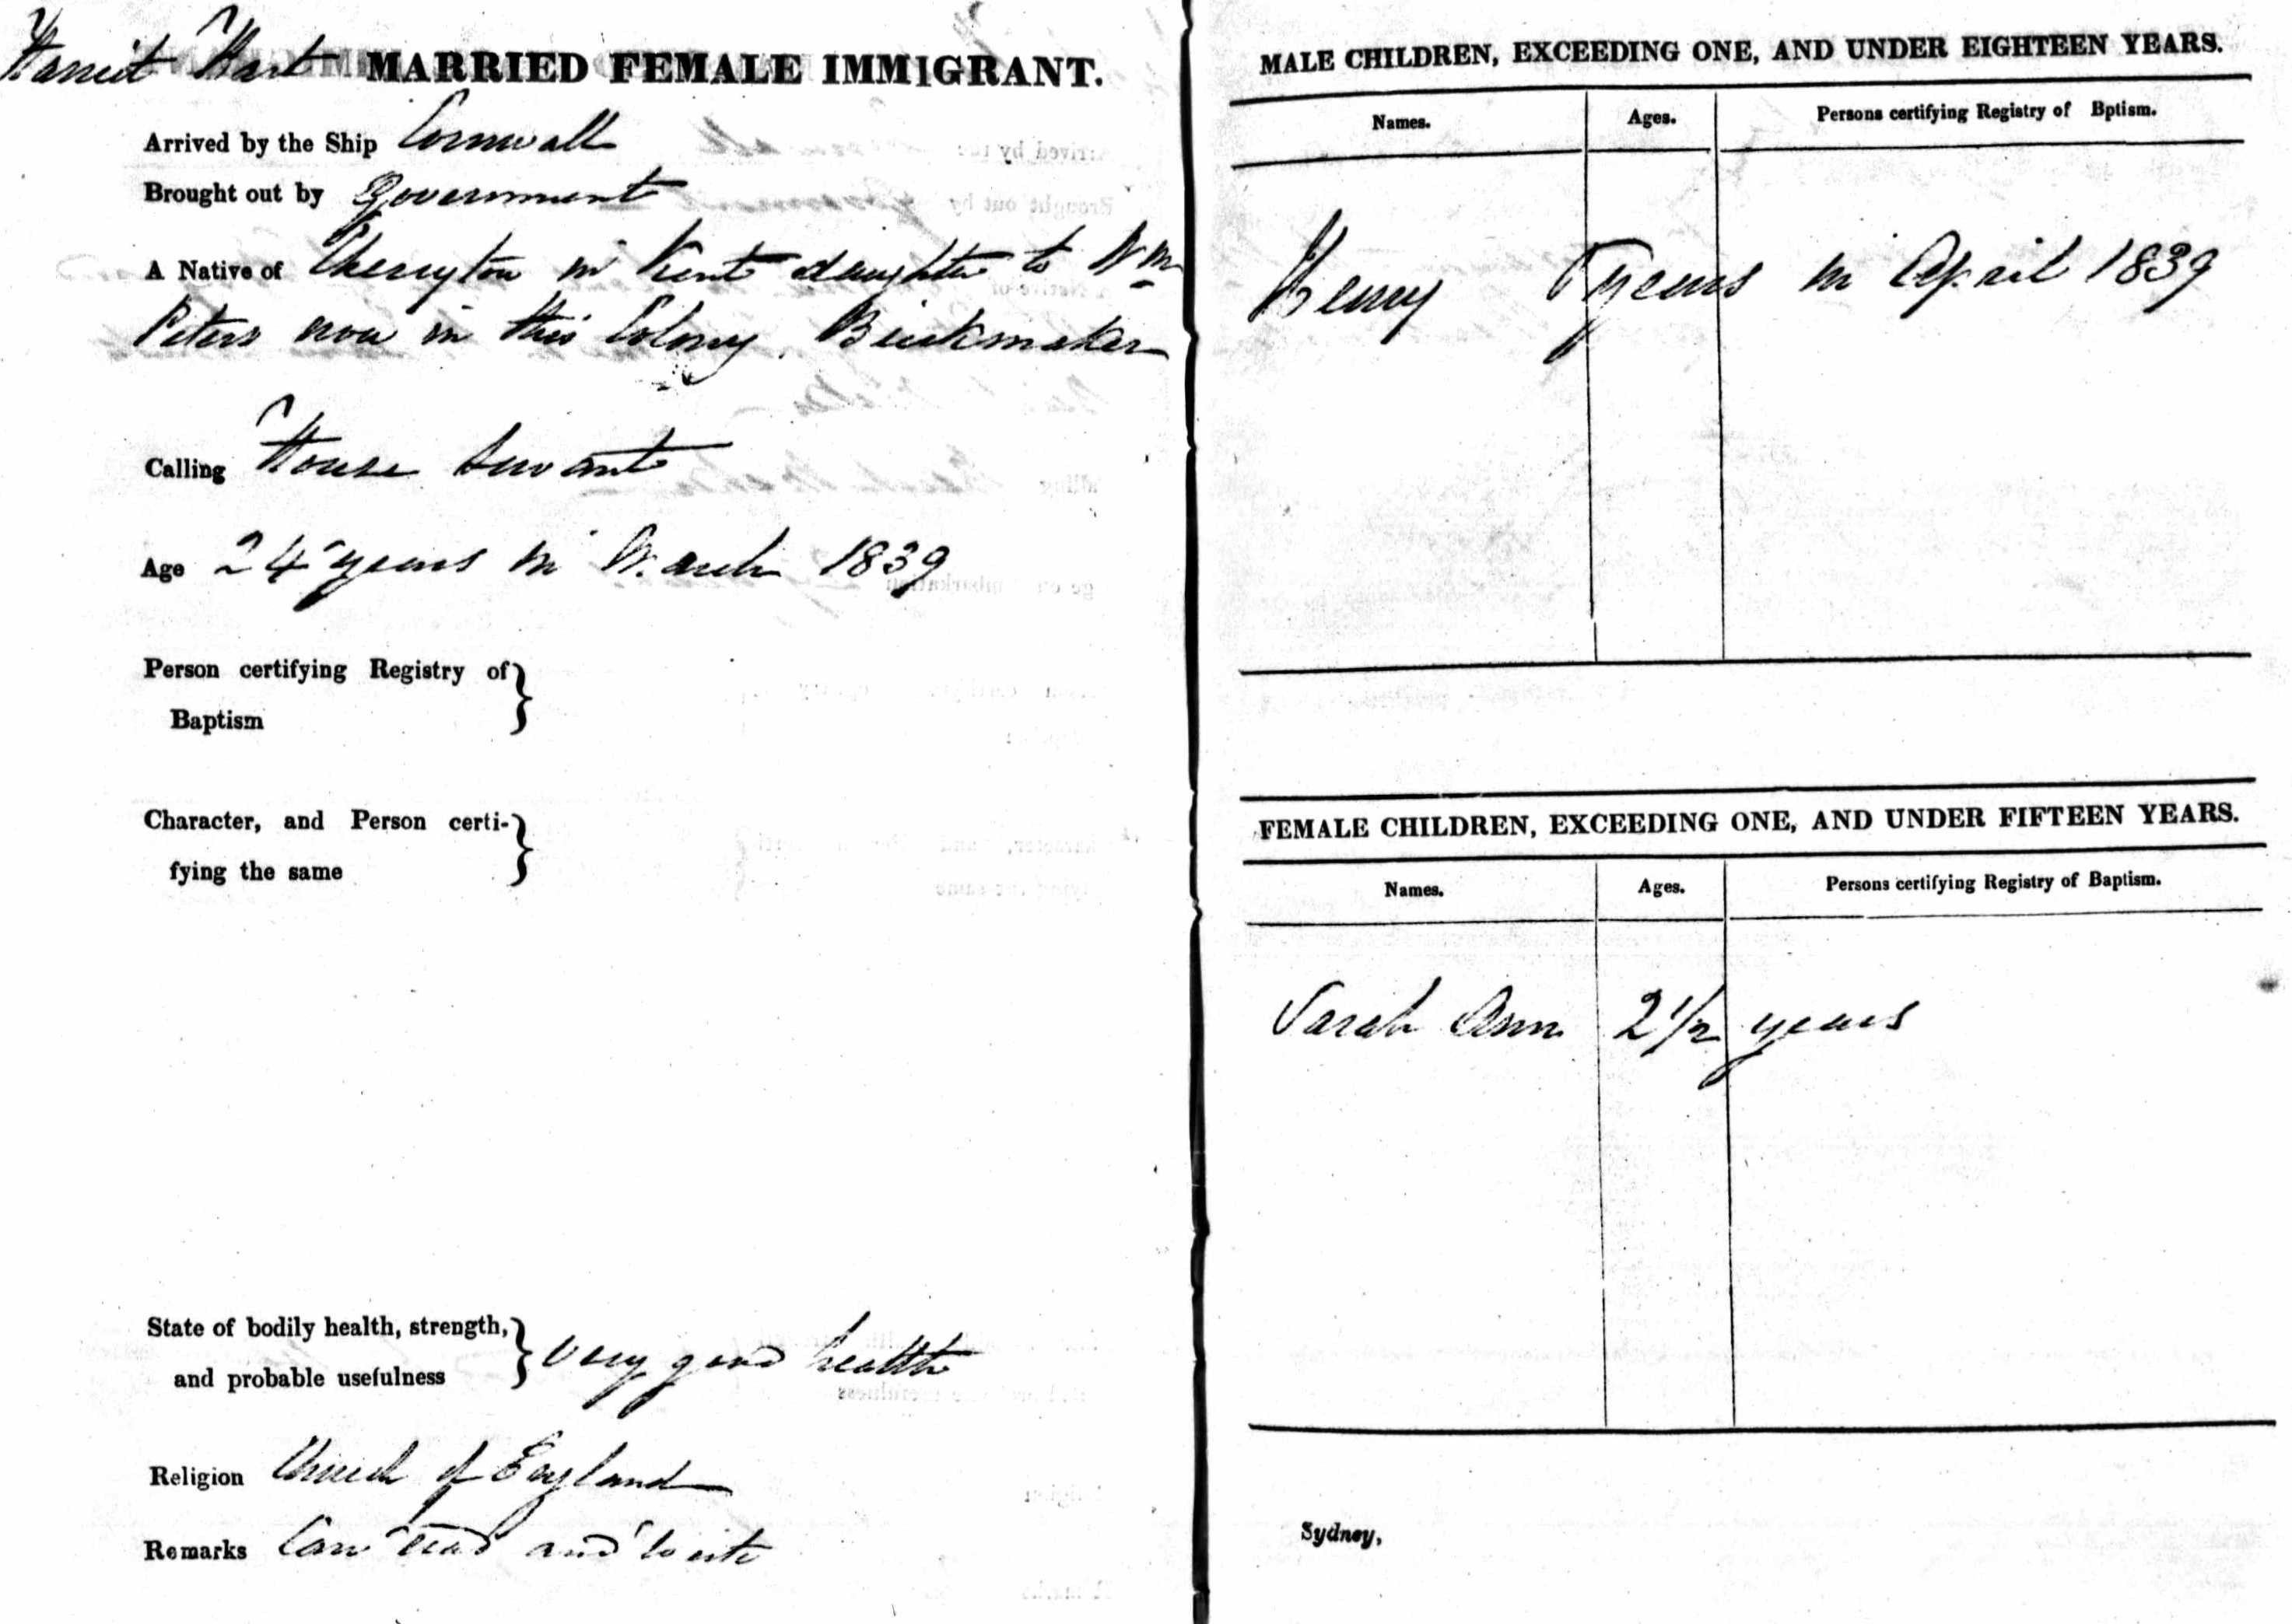 Harriet Hart MARRIED FEMALE IMMIGRANT.
Arrived by the Ship Cornwall
Brought out by Government
A Native of in Kent daughter to Wm
Peters now in this Colony. Brickmaker
Calling House Servant
Age 24 years in March 1839
Person certifying Registry of }
Baptism
Character, and Person certi- }
fying the same
State of bodily health, strength, } Very good health
and probable usefulness
Religion Church of England
Remarks Can read and write
MALE CHILDREN, EXCEEDING ONE, AND UNDER EIGHTEEN YEARS.
Names. Ages. Persons certifying Registry of Bptism.
Henry years in April 1839
FEMALE CHILDREN, EXCEEDING ONE, AND UNDER FIFTEEN YEARS.
Names. Ages. Persons certifying Registry of Baptism.
Sarah Ann 2 1/2 years
Sydney,